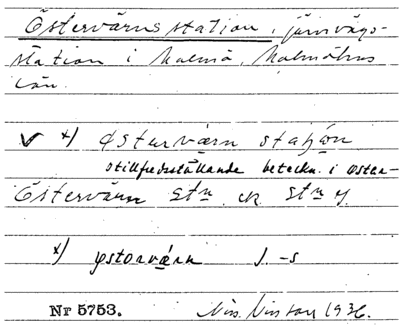 Östervärns station, järnvägs-
station i Malmö, Malmöhus
län.
v x) østervæ̣rn staʃọn
otillfredsställande beteckn. i öster-
Östervärn stn ek stn y.
x) ɏstɷrvæ̣rn J. -s
Nr 5753. Nils Nilsson 1936.